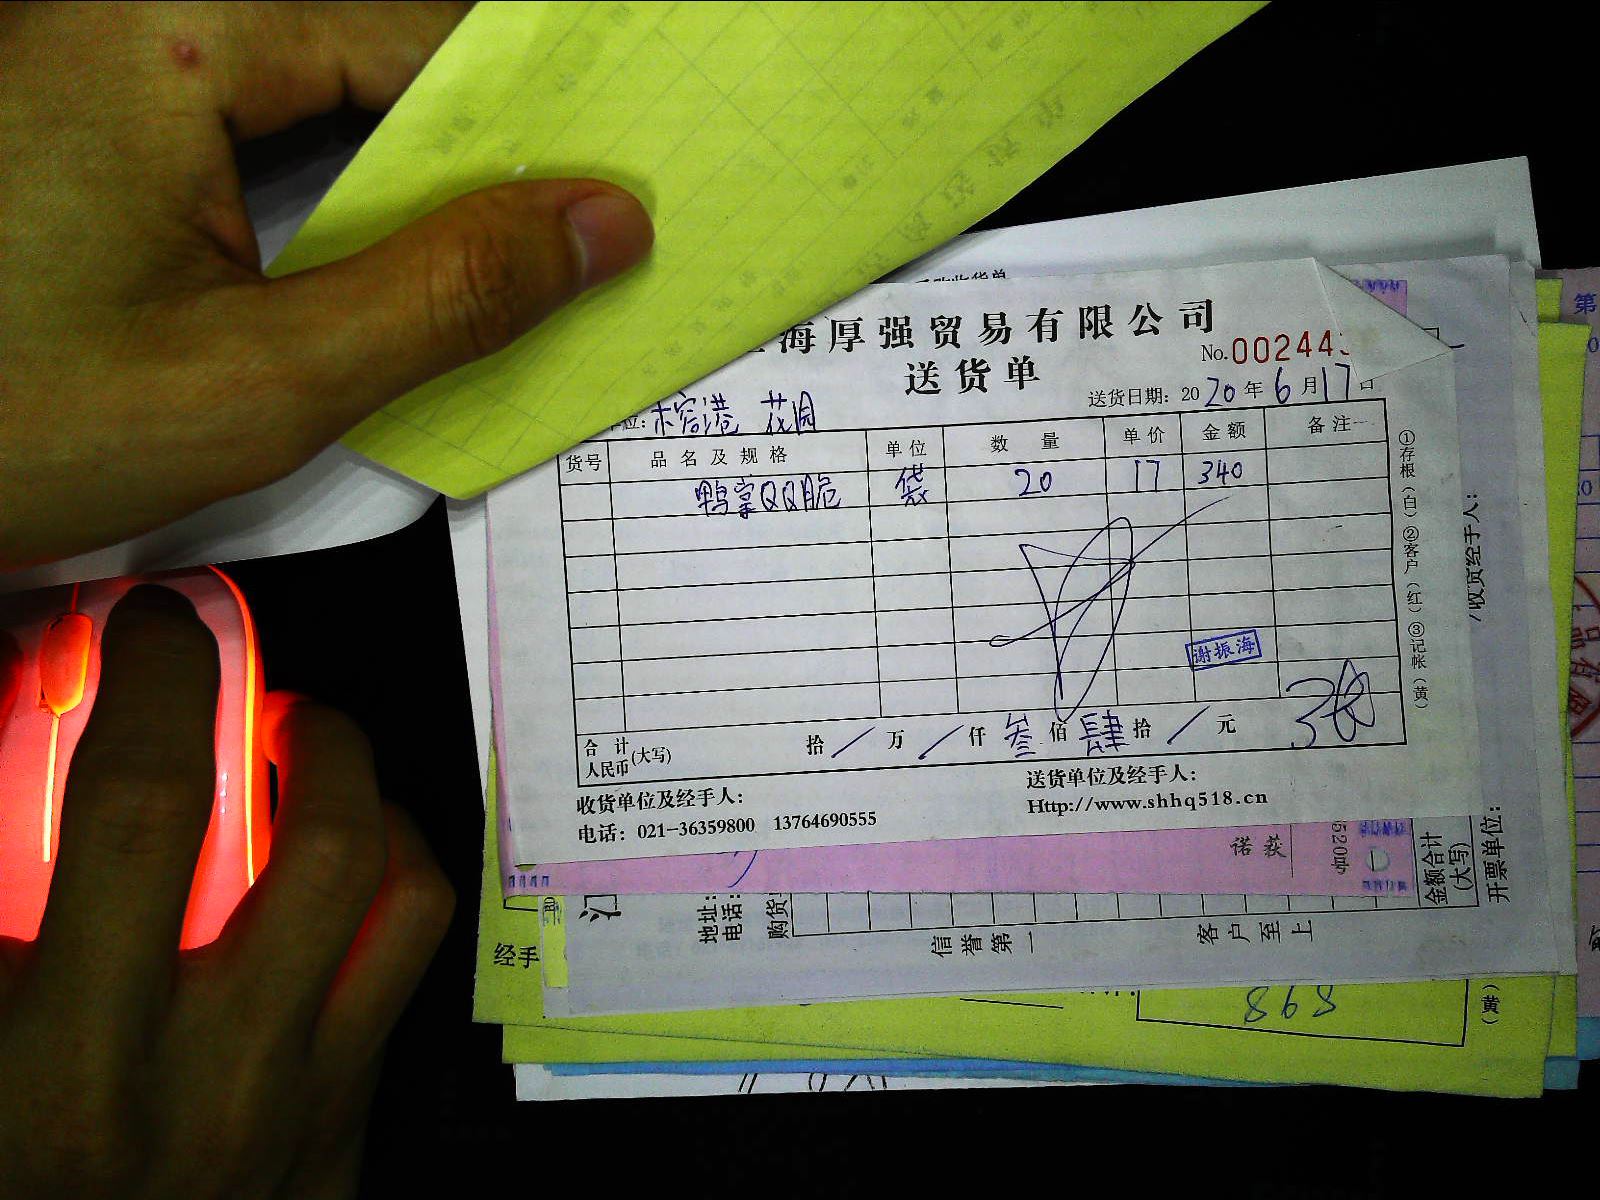 海厚强贸易有限公司
送货单
No.00244
送货日期: 2020年6月17日
榕港 花园
货号 品名及规格 单位 数量 单价 金额 备注
鸭掌QQ脆 袋 20 17 340
谢振海
合计人民币(大写) 拾/万/仟叁佰肆拾/元
收货单位及经手人:
送货单位及经手人:
电话: 021-36359800 13764690555
Http://www.shhq518.cn
①存根(白)②客户(红)③记帐(黄)
收货经手人:
诺荻
520号
金额合计(大写)
开票单位:
地址:
电话:
购货
信誉第一
客户至上
经手
868
(黄)
第